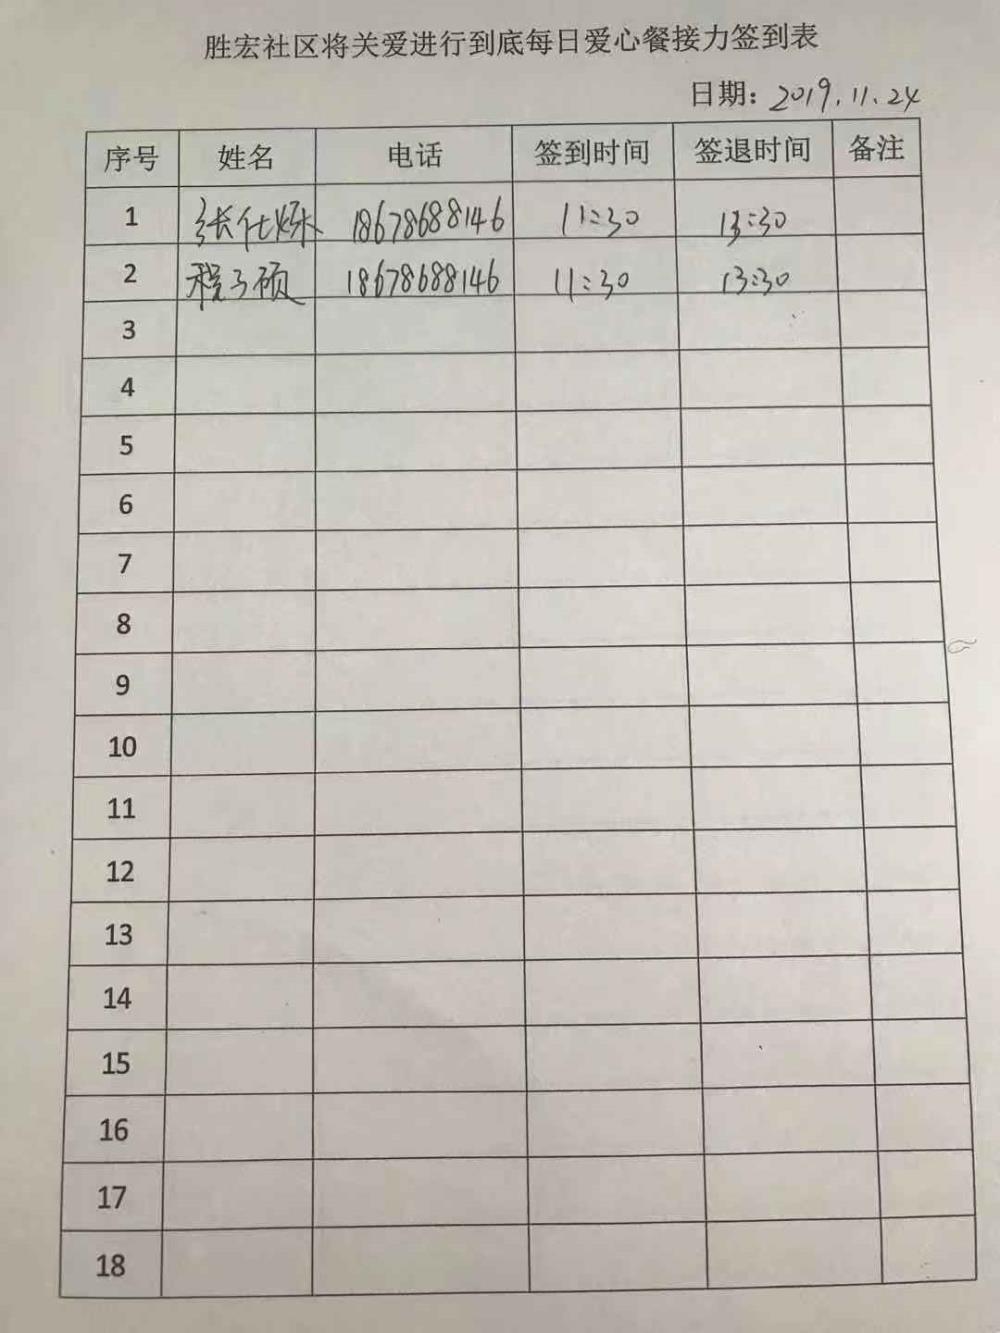 胜宏社区将关爱进行到底每日爱心餐接力签到表
日期：2019.11.24
序号 姓名 电话 签到时间 签退时间 备注
1 张仕烁 18678688146 11:30 13:30
2 程子硕 18678688146 11:30 13:30
3
4
5
6
7
8
9
10
11
12
13
14
15
16
17
18